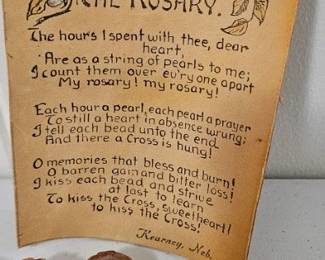 THE ROSARY.
The hours I spent with thee, dear
heart,
Are as a string of pearls to me;
I count them over ev'ry one apart
My rosary! my rosary!
Each hour a pearl, each pearl a prayer
To still a heart in absence wrung;
I tell each bead unto the end
And there a Cross is hung!
O memories that bless and burn!
O barren gain and bitter loss!
I kiss each bead, and strive
at last to learn
To kiss the Cross, sweetheart!
to kiss the Cross!
Kearney, Neb.